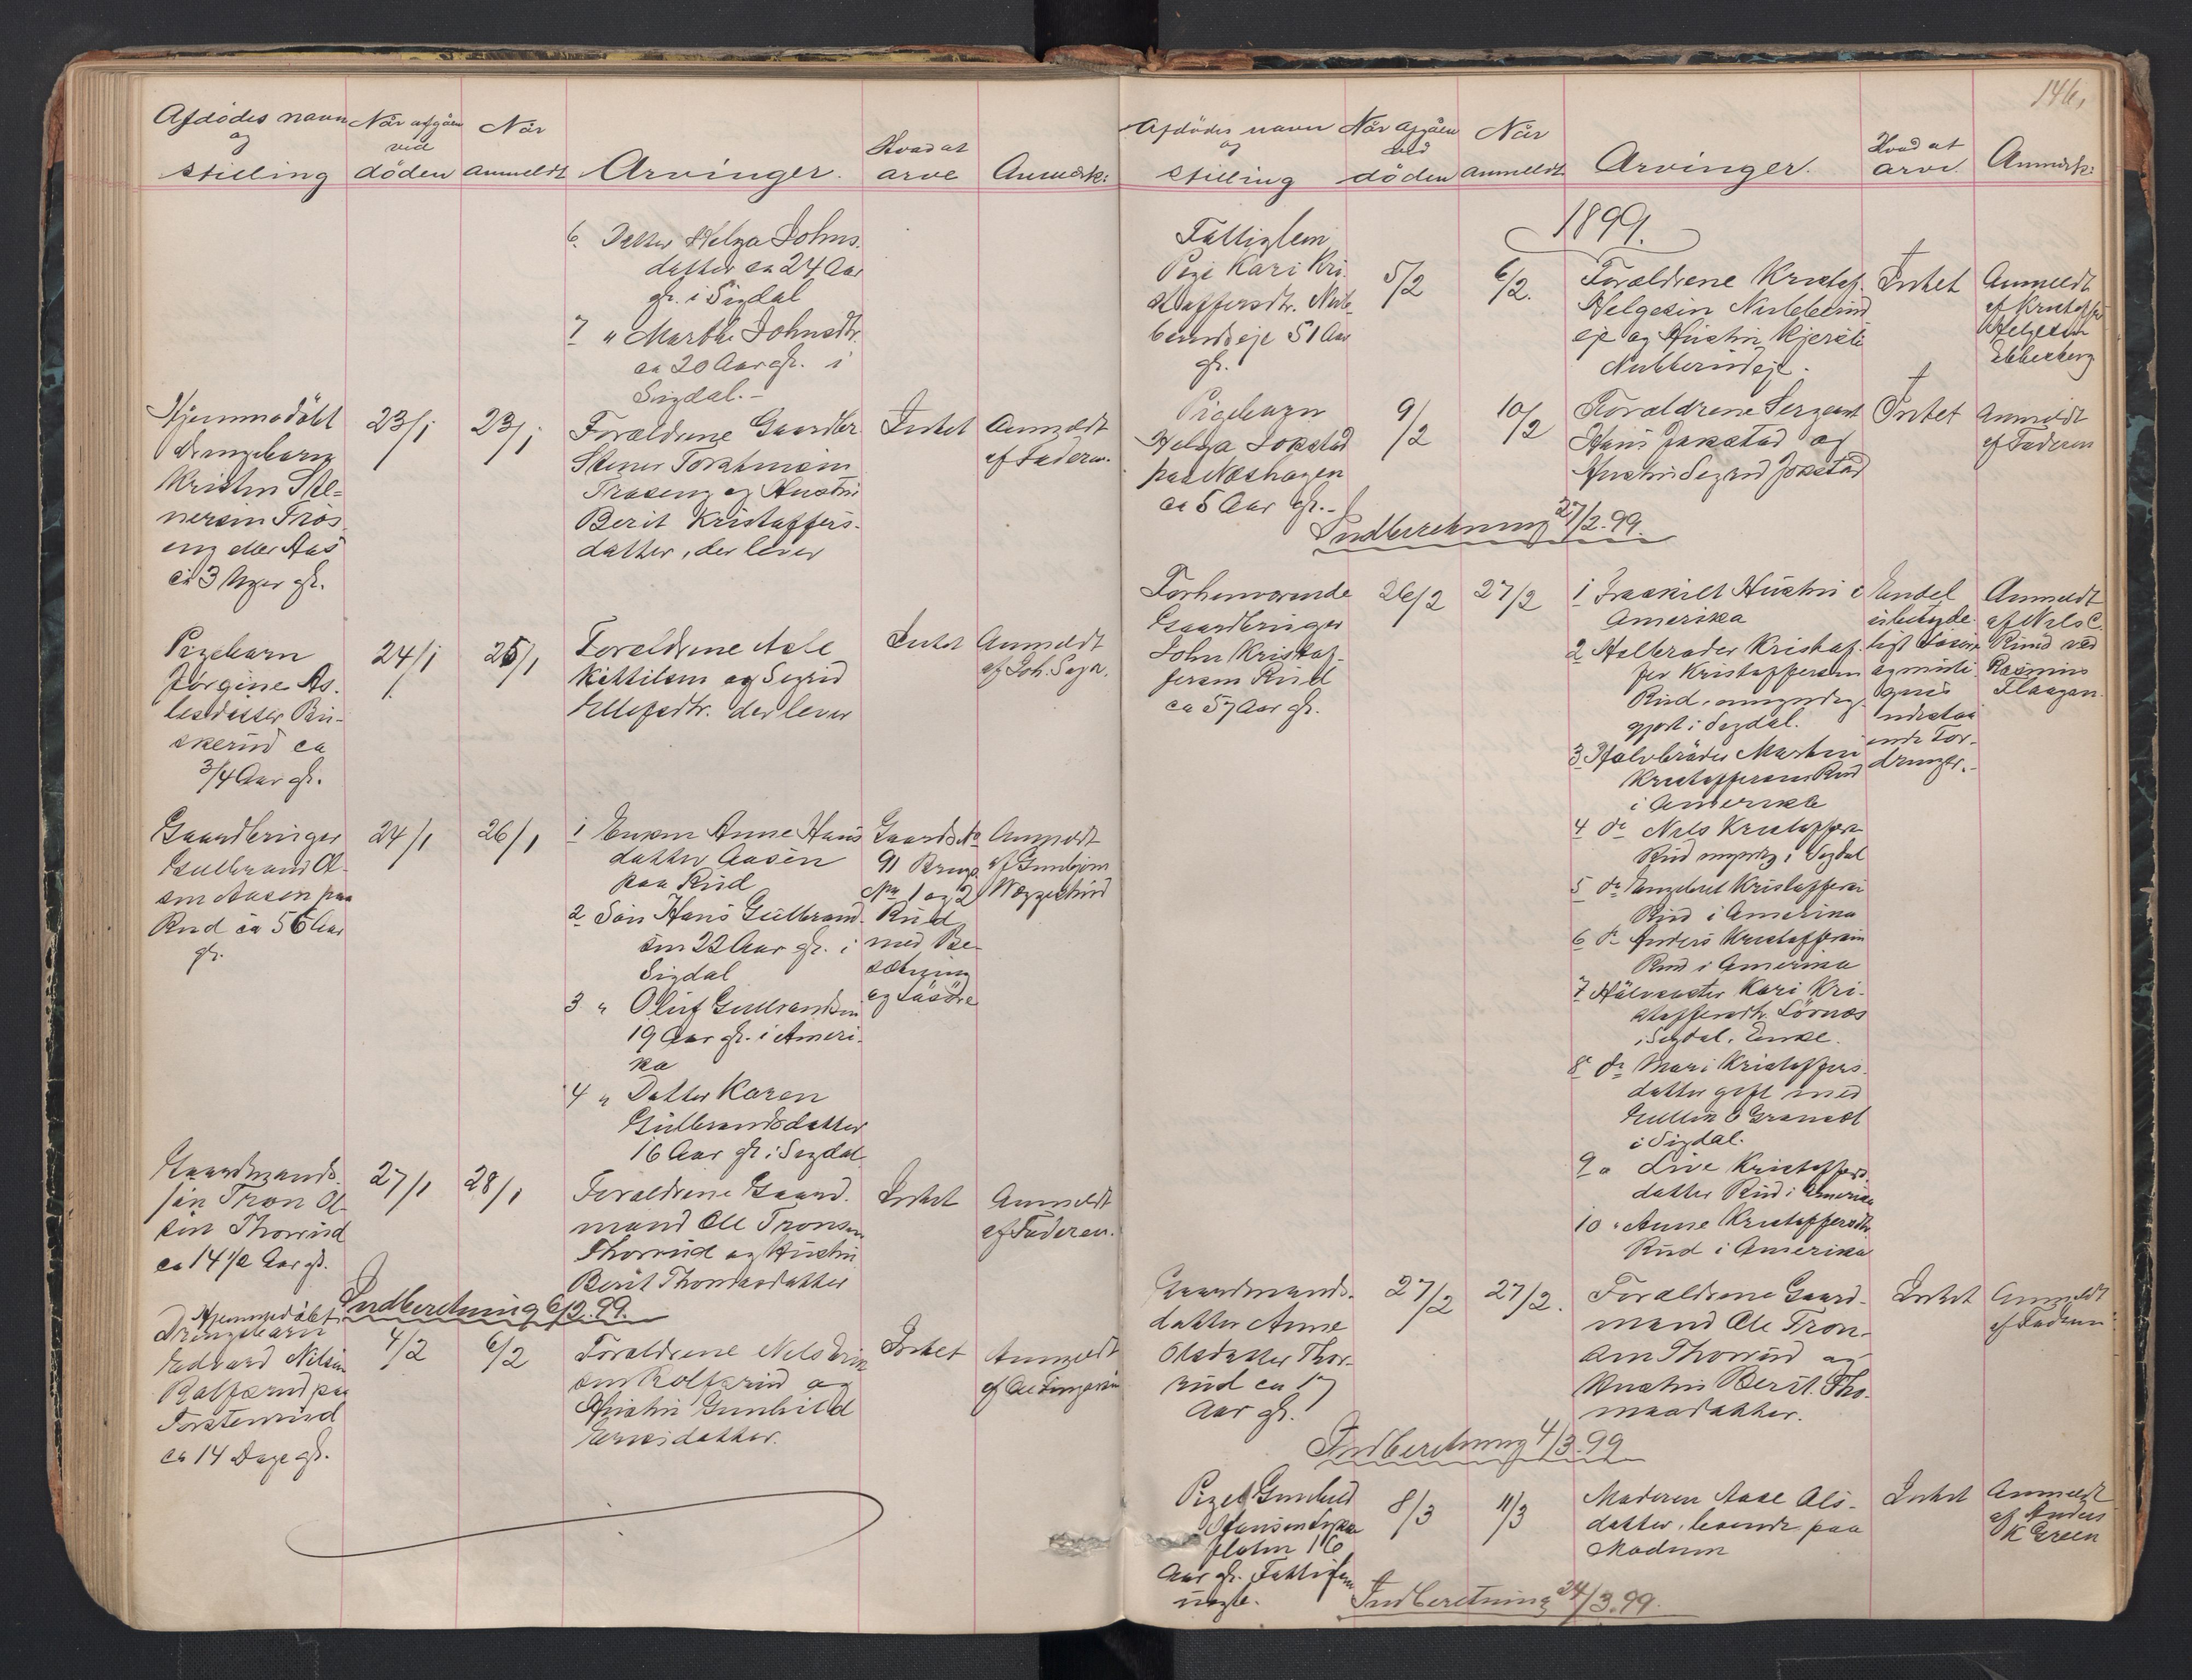 Afdødes navn
og
stilling
Når afgåen
ved
döden
Når
anmeldt
Arvinger.
Hvad at
arve
Anmerk:
6. Datter Helga Johns.
datter ca 24 Aar
gl. i Sigdal
7 " Marthe Johnsdtr.
ca 20 Aar gl. i
Sigdal.-
Hjemmedöbt
Drengebarn
Kristen Ste-
nersen Trös
eng eller Aas
ca 3 Uger gl.
23/1
23/1
Forældrene Gaardbr.
Stener Torstensen
Traaseng og Hustru
Berit Kristoffers-
datter, der lever
Intet
Anmeldt
af Faderen.
Pigebarn
Jörgine As-
lesdatter Bu-
skerud ca
3/4 Aar gl.
24/1
25/1
Forældrene Asle
Kittilsen og Sigrid
Ellefsdtr. der lever
Intet
Anmeldt
af Joh.
Gaardbruger
Gulbrand Ol-
sen Aasen paa
Rud ca 56 Aar
gl.
24/1
26/1
1 Enken Anne Hans
datter Aasen
paa Rud
2 Sön Hans Gulbrand-
sen 22 Aar gl. i
Sigdal
3 " Oluf Gulbrandsen
19 Aar gl. i Ameri-
ka
4 " Datter Karen
Gulbrandsdatter
16 Aar gl i Sigdal
Gaards No
91 Brugs
No 1 og 2
Rud
med Be-
sætning
og Lösöre
Anmeldt
af Gunbjörn
Gaardmands-
sön Tron Ol-
sen Thorrud
ca 14 1/2 Aar gl.
27/1
28/1
Forældrene Gaard-
mand Ole Tronsen
Thorrud og Hustru
Berit Thomasdatter
Intet
Anmeldt
af Faderen.
Indberetning 6/2.99.
Hjemmedöbt
Drengebarn
Edvard Nilsen
Rolfsrud paa
Torstenrud
ca 14 Dage gl.
4/2
6/2
Forældrene Nils Erik
sen Rolfsrud og
Hustru Gunhild
Eriksdatter.
Intet
Anmeldt
af Ole
146,
Afdødes navn
og
stilling
Når afgåen
ved
döden
Når
anmeldt
Arvinger.
Hvad at
arve.
Anmerk:
1899.
Fattiglem
Pige Kari Kri-
stoffersdtr. Nub-
berudeje 51 Aar
gl.
5/2
6/2.
Forældrene Kristof.
Helgesen Nubberud
eje og Hustru Kjersti
Nubberudeje.
Intet
Anmeldt
af Kristoffer
Helgesen
Ebbesberg
Pigebarn
Helga Jokstad
paa Næshagen
ca 5 Aar gl.-
9/2
10/2
Forældrene Sergeant
Hans Jokstad og
Hustru Sigrid Jokstad
Intet
Anmeldt
af Faderen
Indberetning 27/2.99.
Forhenværende
Gaardbruger
John Kristof-
fersen Rud
ca 57 Aar gl.
26/2
27/2
1 Fraskilt Hustru i
Amerika
2 Halbroder Kristof-
fer Kristoffersen
Rud, umyndig-
gjort i Sigdal.
3 Halvbröder Martin
Kristoffersen Rud
i Amerika
4 do Nels Kristoffersen
Rud myndig i Sigdal
5 do Engebret Kristoffersen
Rud i Amerika
6 do Anders Kristoffersen
Rud i Amerika
7 Halvsöster Kari Kri-
stoffersdtr. Lörnes
i Sigdal. Enke.
8 do Mari Kristoffers-
datter gift med
Gullik O Granset
i Sigdal.
9 " Live Kristoffers
datter Rud i Amerika
10 " Anne Kristoffersdtr.
Rud i Amerika
Endel
ubetyde-
ligt Lösöre
og
udestaa-
ende For-
dringer.-
Anmeldt
af Nils C.
Rund ved
Rasmus
Flaagan.
Gaardmands-
datter Anne
Olsdatter Thor-
rud ca 17
Aar gl.
27/2
27/2.
Forældrene Gaard-
mand Ole Tron-
sen Thorrud og
Hustru Berit Tho-
masdatter.
Intet
Anmeldt
af Faderen
Indberetning 4/3.99
Pige Gunhild
Hansen
Holm 16
Aar gl. Fattiglem
ugift.
8/3
11/3
Moderen Aase Ols-
datter, boende paa
Modum
Intet
Anmeldt
af Anders
K Green
Indberetning 24/3.99.